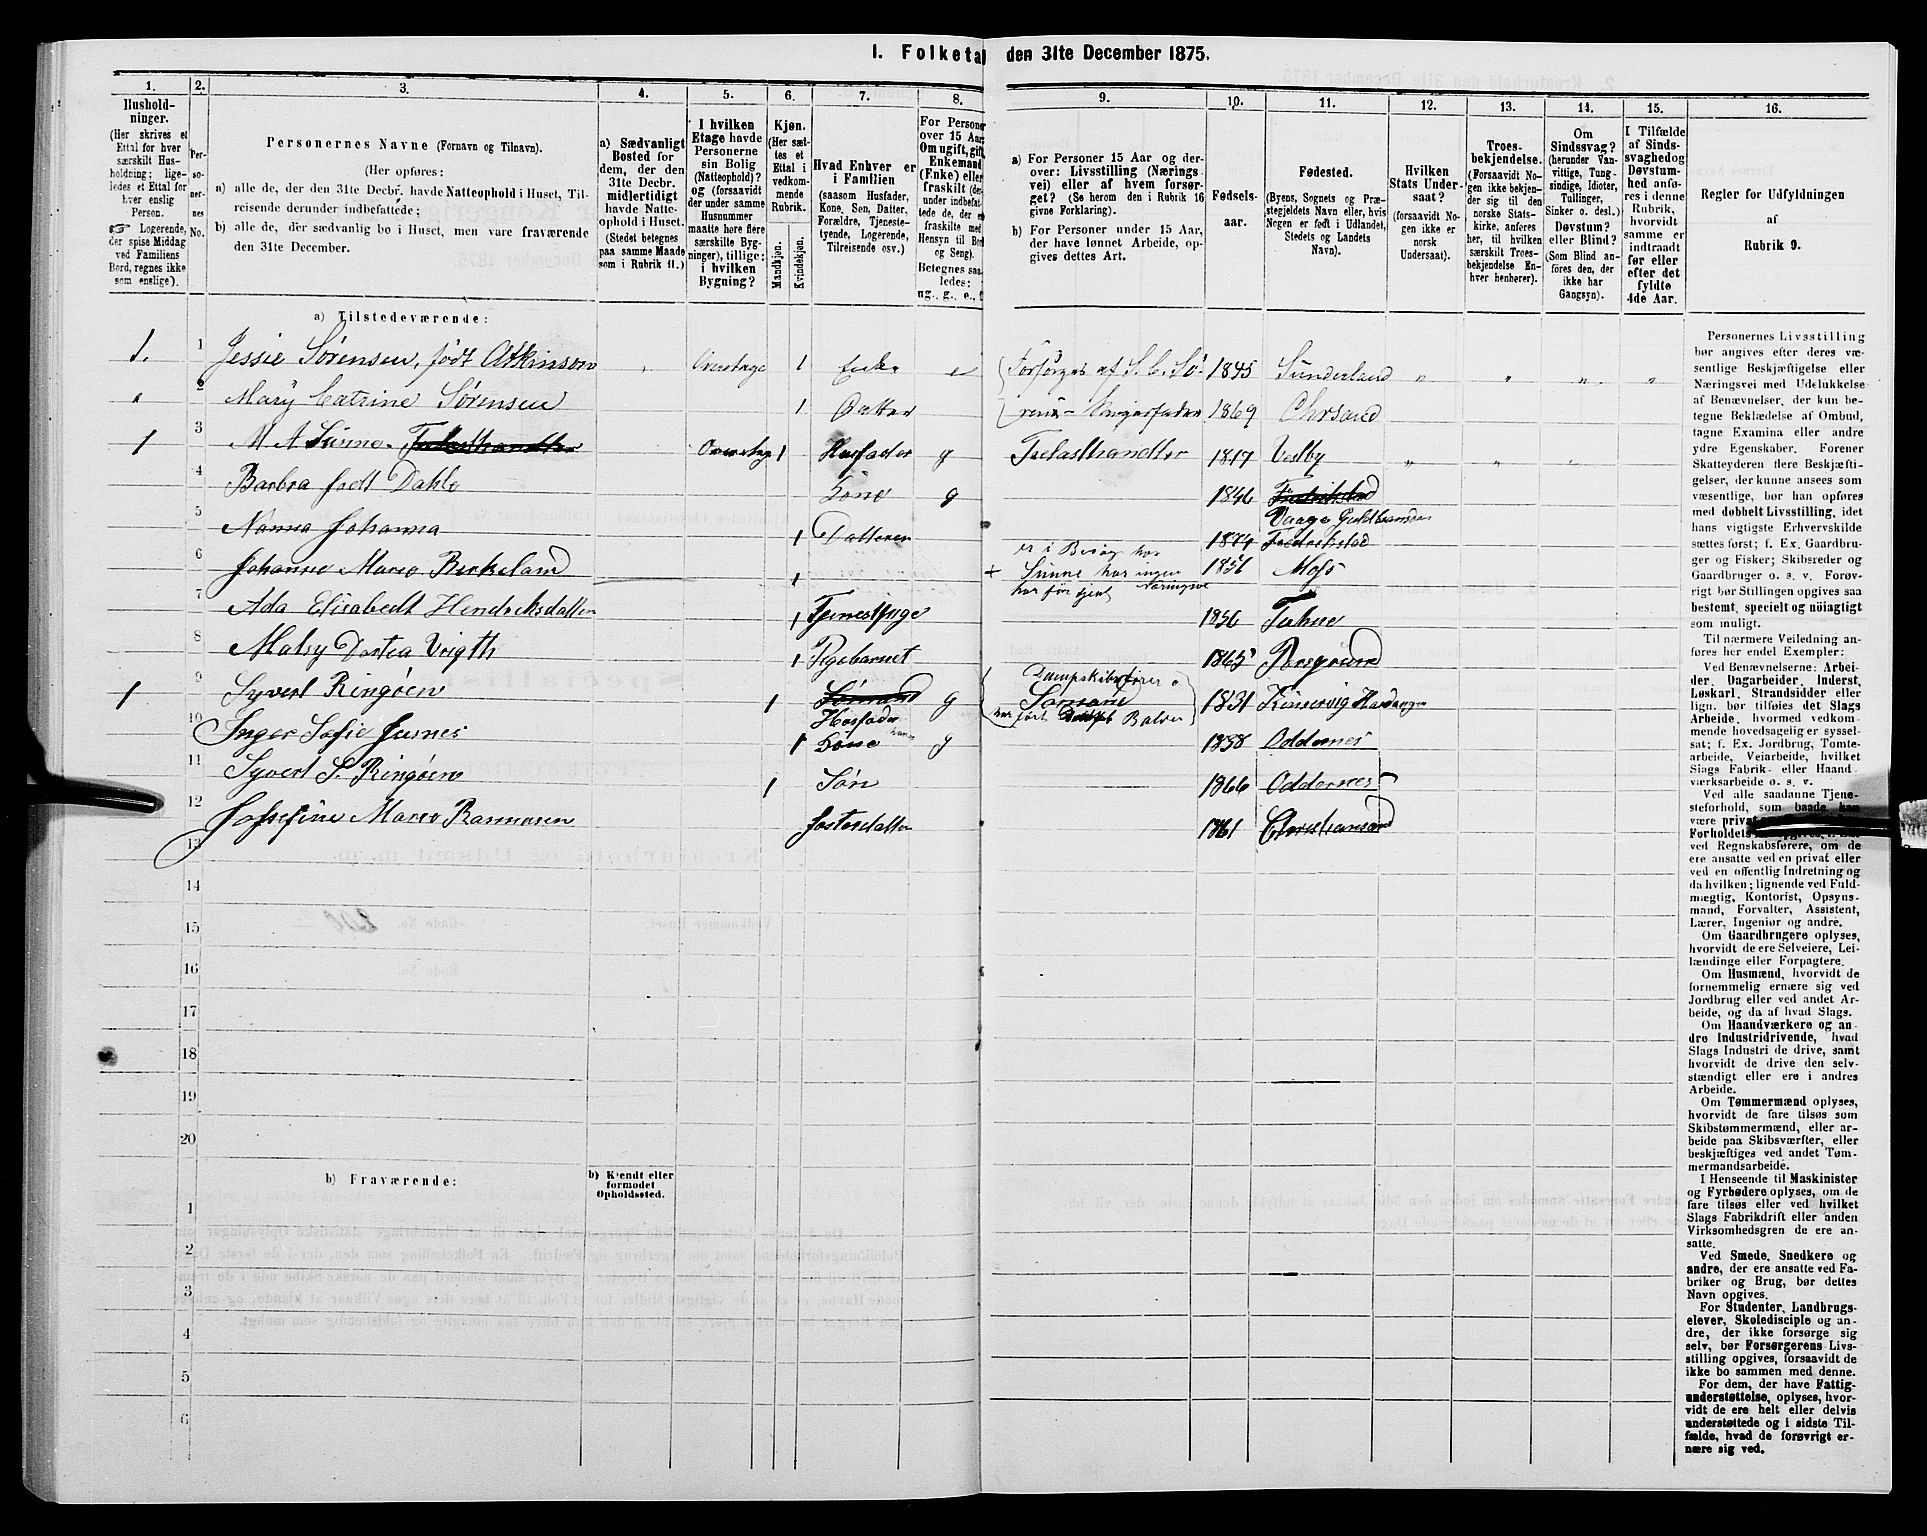 1. Folketa den 31te December 1875.
1. 2. 3. 4. 5. 6. 7. 8. 9. 10. 11. 12. 13. 14. 15. 16.
Hushold-
ninger.
(Her skrives et
Ettal for hver
særskilt Hus-
holdning; lige-
ledes et Ettal for
hver enslig
Person.
☞ Logerende,
der spise Middag
ved Familiens
Bord, regnes ikke
som enslige).
Per-
so-
ner-
nes
No.
Personernes Navne (Fornavn og Tilnavn).
(Her opføres:
a) alle de, der den 31te Decbr. havde Natteophold i Huset, Til-
reisende derunder indbefattede;
b) alle de, der sædvanlig bo i Huset, men vare fraværende
den 31te December.
a) Sædvanligt
Bosted for
dem, der den
31te Decbr.
midlertidigt
havde Natte-
ophold i Huset.
(Stedet betegnes
paa samme Maade
som i Rubrik 11.)
I hvilken
Etage havde
Personerne
sin Bolig
(Natteophold)?
og (forsaavidt
der under samme
Husnummer
maatte høre flere
særskilte Byg-
ninger), tillige:
i hvilken
Bygning?
Kjøn.
(Her sæt-
tes et
Ettal i
vedkom-
mende
Rubrik.
Mandkjøn.
Kvindekjøn.
Hvad Enhver er
i Familien
(saasom Husfader,
Kone, Søn, Datter,
Forældre, Tjeneste-
tyende, Logerende,
Tilreisende osv.)
For Persone
over 15 Aar
Om ugift, gift
Enkemand
(Enke) eller
fraskilt (de
under indbefat-
tede de, der e
fraskilte med
Hensyn til Bord
og Seng).
Betegnes saa
ledes:
ug., g., e., f
a) For Personer 15 Aar og der-
over: Livsstilling (Nærings
vei) eller af hvem forsør-
get? (Se herom den i Rubrik 16
givne Forklaring).
b) For Personer under 15 Aar,
der have lønnet Arbeide, op-
gives dettes Art.
Fødsels-
aar.
Fødested.
(Byens, Sognets og Præ-
stegjeldets Navn eller, hvis
Nogen er født i Udlandet,
Stedets og Landets
Navn).
Hvilken
Stats Under-
saat?
(forsaavidt No-
gen ikke er
norsk
Undersaat).
Troes-
bekjendelse.
(Forsaavidt No-
gen ikke bekjen-
der sig til den
norske Stats-
kirke, anføres
her, til hvilken
særskilt Troes-
bekjendelse En-
hver henhører).
Om
Sindssvag?
(herunder Van-
vittige, Tung-
sindige, Idioter,
Tullinger,
Sinker o. desl.)
Døvstum?
eller Blind?
(Som Blind an-
føres den, der
ikke har
Gangsyn).
I Tilfælde
af Sinds-
svaghed og
Døvstum-
hed anfø-
res i denne
Rubrik,
hvorvidt
samme er
indtraadt
før eller
efter det
fyldte
4de Aar.
Regler for Udfyldningen
af
Rubrik 9.
a) Tilstedeværende:
1. 1 Jessie Sørensen, født Atkinson Overetage 1 Enke e Forsørges af S. C. Sø- 1845 Sunderland " " " "
" 2 Mary Catrine Sørensen 1 Datter rens- Svigerfader 1869 Chrsand
1 3 M A Sunne. Trælasthandler Overetag 1 Husfader g Trelasthandler 1847 Vestby " "
4 Barbra født Dahle Kone g 1846 Fredrikstad
Vaage Guldbrandsd
5 Nanna Johanna 1 Datteren 1874 Fredrikstad
6 Johanne Marie Birkeland 1 er i Besøg hos
+ Sunne har ingen
har før tjent Næringsve 1856 Moss
7 Ada Elisabedt Hendriksdatter 1 Tjenestpige 1856
8 Malsy Dortea Vrigth 1 Pigebarnet 1865 Porsgrund
1 9 Syvert Ringøen 1 Sømand Husfader g Dampskibsfører
Sømand
har ført 1831 Kinservig Hardanger
10 Inger Sofie Jusnes 1 Kone g 1838 Oddernes
11 Syvert S. Ringøen 1 Søn 1866 Oddernes
12 Josefine Marie Rasmusen fosterdatter 1861 Christiansand
13
14
15
16
17
18
19
20
b) Fraværende:
b) Kjendt eller
formodet
Opholdssted.
1
2
3
4
5
6
Personernes Livsstilling
bør angives efter deres væ-
sentlige Beskjæftigelse eller
Næringsvei med Udelukkelse
af Benævnelser, der kun be-
tegne Beklædelse af Ombud,
tagne Examina eller andre
ydre Egenskaber. Forener
Skatteyderen flere Beskjæfti-
gelser, der kunne ansees som
væsentlige, bør han opføres
med dobbelt Livsstilling, idet
hans vigtigste Erhvervskilde
sættes først; f. Ex. Gaardbru-
ger og Fisker; Skibsreder og
Gaardbruger o. s. v. Forøv-
rigt bør Stillingen opgives saa
bestemt, specielt og nöiagtigt
som muligt.
Til nærmere Veiledning an-
føres her endel Exempler:
Ved Benævnelserne: Arbei-
der, Dagarbeider, Inderst,
Løskarl, Strandsidder eller
lign. bør tilføies det Slags
Arbeide, hvormed vedkom-
mende hovedsagelig er syssel-
sat; f. Ex. Jordbrug, Tomte-
arbeide, Veiarbeide, hvilket
Slags Fabrik- eller Haand-
værksarbeide o. s. v.
Ved alle saadanne Tjene-
steforhold, som baade kan
være privat
Forholdets
ved Regnskabsførere, om de
ere ansatte ved en privat eller
ved en offentlig Indretning og
da hvilken; lignende ved Fuld-
mægtig, Kontorist, Opsyns-
mand, Forvalter, Assistent,
Lærer, Ingeniør og andre.
Om Gaardbrugere oplyses,
hvorvidt de ere Selveiere, Lei-
lændinge eller Forpagtere.
Om Husmænd, hvorvidt de
fornemmelig ernære sig ved
Jordbrug eller ved andet Ar-
beide, og da af hvad Slags.
Om Haandværkere og an-
dre Industridrivende, hvad
Slags Industri de drive, samt
hvorvidt de drive den selv-
stændigt eller ere i andres
Arbeide.
Om Tømmermænd oplyses,
hvorvidt de fare tilsøs som
Skibstømmermænd, eller ar-
beide paa Skibsværfter, eller
beskjæftiges ved andet Tøm-
mermandsarbeide.
I Henseende til Maskinister
og Fyrbødere oplyses, om de
fare tilsøs eller ved hvilket
Slags Fabrikdrift eller anden
Virksomhedsgren de ere an-
satte.
Ved Smede, Snedkere og
andre, der ere ansatte ved Fa-
briker og Brug, bør dettes
Navn opgives.
For Studenter, Landbrugs-
elever, Skoledisciple og an-
dre, der ikke forsørge sig
selv, bør Forsørgerens Livs-
stilling opgives, forsaavidt de
ikke bo sammen med denne.
For dem, der have Fattig-
understøttelse, oplyses, hvor-
vidt de ere helt eller delvis
understøttede og i sidste Til-
fælde, hvad de forøvrigt er-
nære sig ved.